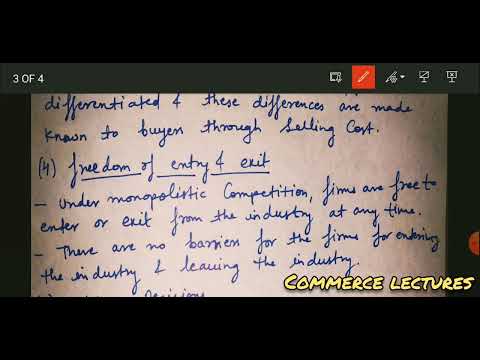 3 OF 4
differentiated & these differences are made
known to buyers through Selling Cost.
(4) freedom of entry & exit
- Under monopolistic Competition, firms are free to
enter or exit from the industry at any time.
- There are no barriers for the firms for entering
the industry & leaving the industry.
COMMERCE LECTURES
decisions